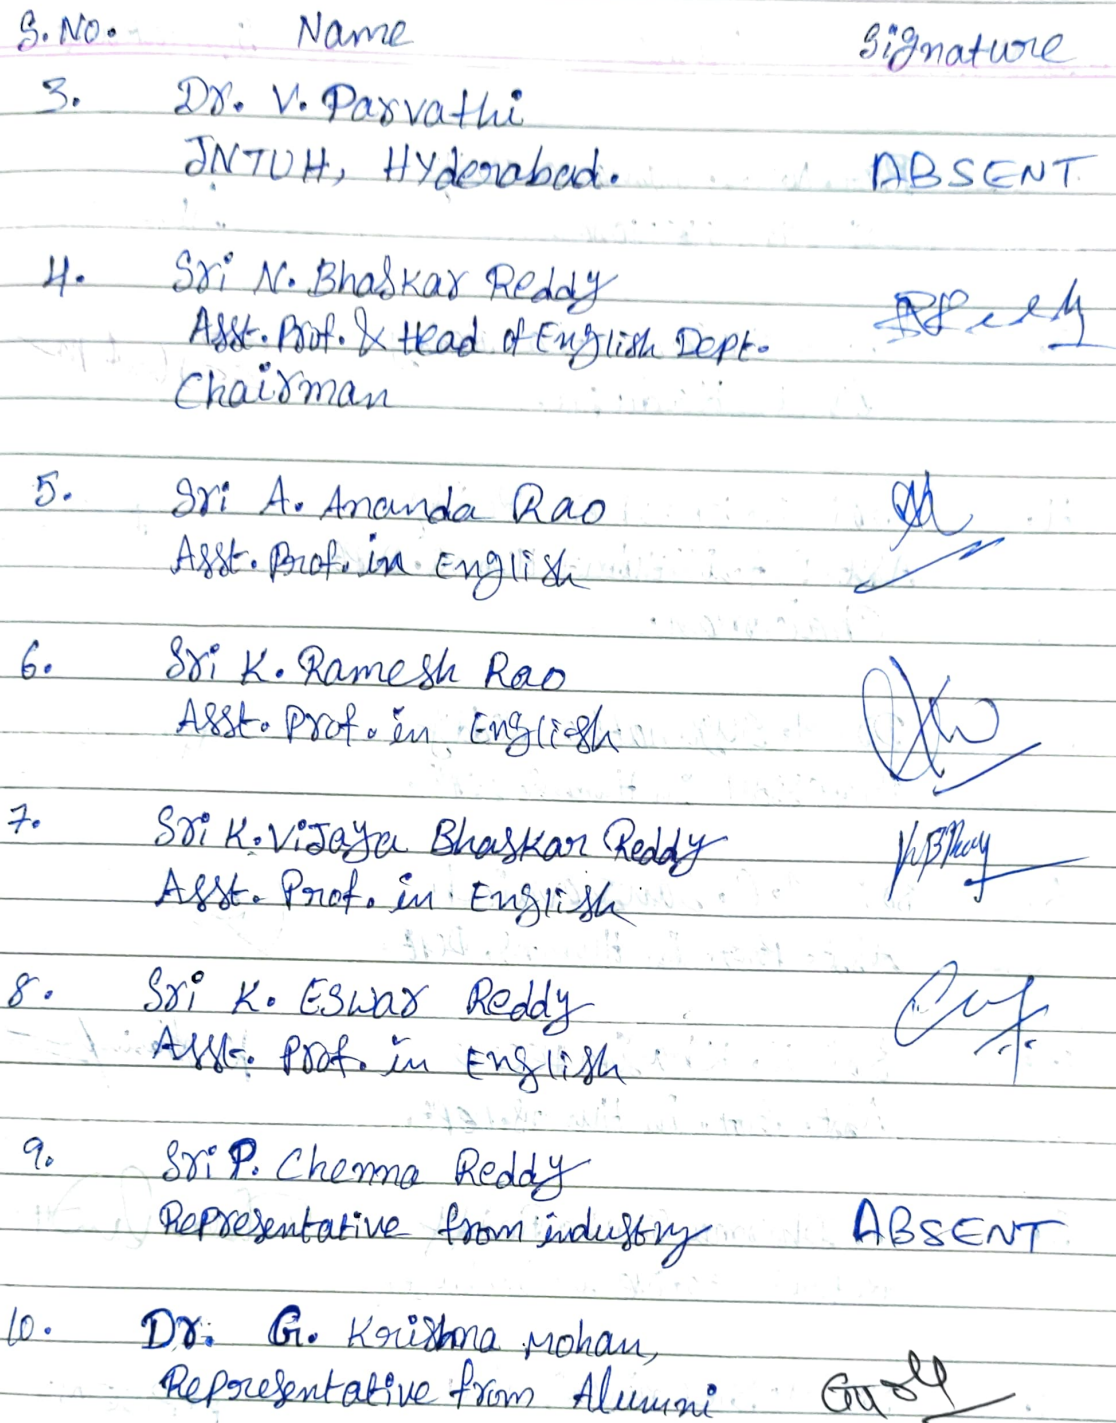 S. No. Name Signature
3. Dr. V. Parvathi
JNTUH, Hyderabad. ABSENT
4. Sri N. Bhaskar Reddy
Asst. Prof. & Head of English Dept.
Chairman
5. Sri A. Ananda Rao
Asst. Prof. in English
6. Sri K. Ramesh Rao
Asst. Prof. in English
7. Sri K. Vijaya Bhaskar Reddy
Asst. Prof. in English
8. Sri K. Eswar Reddy
Asst. Prof. in English
9. Sri P. Chenna Reddy
Representative from industry ABSENT
10. Dr. G. Krishna Mohan,
Representative from Alumni